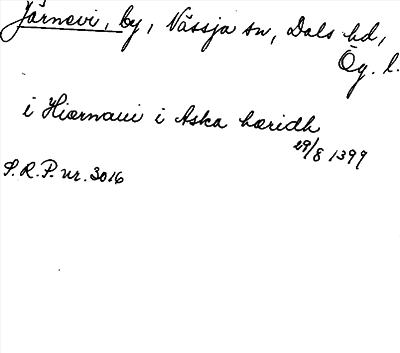 Järnevi, by, Nässja sn, Dals hd,
Ög. l.
i Hiærnaui i Aska hæridh
29/8 1399
S.R.P. nr. 3016